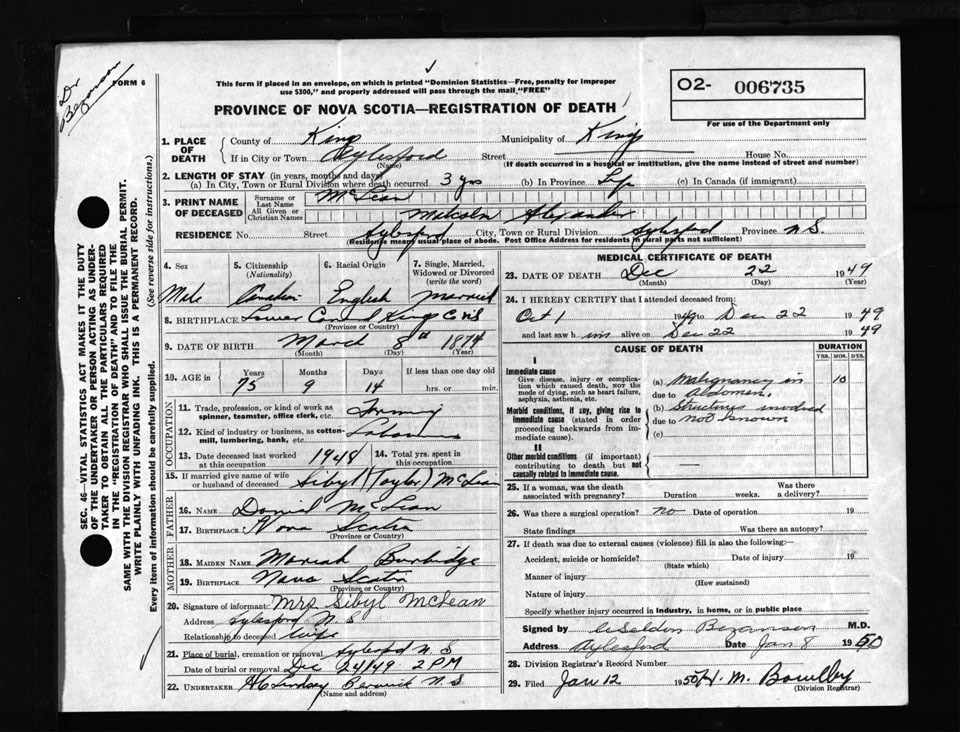 Dr
Bezanson
FORM 6
This form if placed in an envelope, on which is printed "Dominion Statistics—Free, penalty for improper
use $300," and properly addressed will pass through the mail "FREE"
PROVINCE OF NOVA SCOTIA—REGISTRATION OF DEATH
O2- 006735
For use of the Department only
SEC. 46—VITAL STATISTICS ACT MAKES IT THE DUTY
OF THE UNDERTAKER OR PERSON ACTING AS UNDER-
TAKER TO OBTAIN ALL THE PARTICULARS REQUIRED
IN THE "REGISTRATION OF DEATH" AND TO FILE THE
SAME WITH THE DIVISION REGISTRAR WHO SHALL ISSUE THE BURIAL PERMIT.
WRITE PLAINLY WITH UNFADING INK. THIS IS A PERMANENT RECORD.
(See reverse side for instructions.)
Every item of information should be carefully supplied.
1. PLACE OF DEATH County of Kings Municipality of Kings
If in City or Town Aylesford Street House No.
(Name) (If death occurred in a hospital or institution, give the name instead of street and number)
2. LENGTH OF STAY (in years, months and days)
(a) In City, Town or Rural Division where death occurred 3 yrs (b) In Province Life (c) In Canada (if immigrant)
3. PRINT NAME OF DECEASED Surname or Last Name McLean
All Given or Christian Names Malcolm Alexander
RESIDENCE No. Street Aylesford City, Town or Rural Division Aylesford Province N.S.
(Residence means usual place of abode. Post Office Address for residents in rural parts not sufficient)
4. Sex 5. Citizenship (Nationality) 6. Racial Origin 7. Single, Married, Widowed or Divorced (write the word)
Male Canadian English Married
8. BIRTHPLACE Lower Canard Kings Co N.S
(Province or Country)
9. DATE OF BIRTH March 8th 1874
(Month) (Day) (Year)
10. AGE in Years Months Days If less than one day old
75 9 14 hrs. or min.
OCCUPATION
11. Trade, profession, or kind of work as spinner, teamster, office clerk, etc. Farming
12. Kind of industry or business, as cotton-mill, lumbering, bank, etc. Labourer
13. Date deceased last worked at this occupation 1948 14. Total yrs. spent in this occupation
15. If married give name of wife or husband of deceased Sibyl (Taylor) McLean
FATHER
16. NAME Daniel McLean
17. BIRTHPLACE Nova Scotia
(Province or Country)
MOTHER
18. MAIDEN NAME Mariah Burbidge
19. BIRTHPLACE Nova Scotia
(Province or Country)
20. Signature of informant Mrs Sibyl McLean
Address Aylesford N.S
Relationship to deceased wife
21. Place of burial, cremation or removal Aylesford N S
Date of burial or removal Dec 24/49 2 PM
22. UNDERTAKER H C Lindsay Berwick N.S
(Name and address)
MEDICAL CERTIFICATE OF DEATH
23. DATE OF DEATH Dec 22 1949
(Month) (Day) (Year)
24. I HEREBY CERTIFY that I attended deceased from:
Oct 1 1949 to Dec 22 1949
and last saw him alive on Dec 22 1949
CAUSE OF DEATH DURATION
YRS. MOS. DYS.
I
Immediate cause
Give disease, injury or complication which caused death, NOT the mode of dying, such as heart failure, asphyxia, asthenia, etc.
(a) Malignancy in 10
due to abdomen.
Morbid conditions, if any, giving rise to immediate cause (stated in order proceeding backwards from immediate cause).
(b) Structures involved
due to not known
(c)
II
Other morbid conditions (if important) contributing to death but not causally related to immediate cause.
25. If a woman, was the death associated with pregnancy? Duration weeks. Was there a delivery?
26. Was there a surgical operation? no Date of operation 19
State findings Was there an autopsy?
27. If death was due to external causes (violence) fill in also the following:—
Accident, suicide or homicide? Date of injury 19
(State which)
Manner of injury
(How sustained)
Nature of injury
Specify whether injury occurred in industry, in home, or in public place
Signed by Bezanson M.D.
Address Aylesford Date Jan 8 1950
28. Division Registrar's Record Number
29. Filed Jan 12 1950 H. M. Bowlby
(Division Registrar)